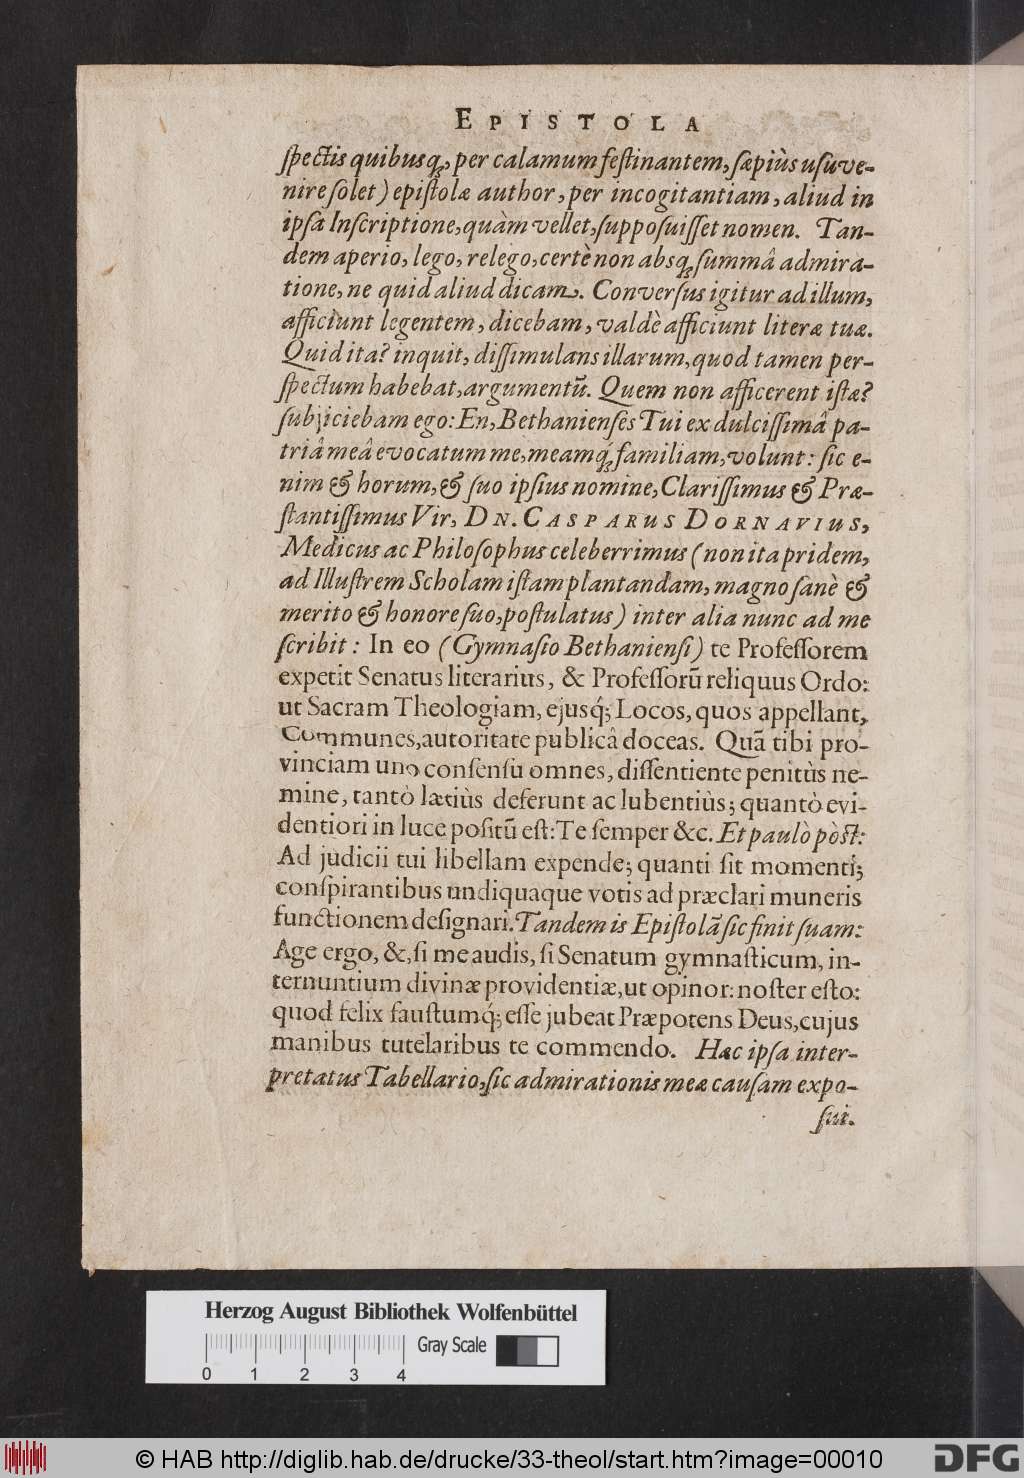 EPISTOLA
ſpectis quibusq́;, per calamum feſtinantem, ſæpiùs uſuve-
nire ſolet) epiſtolæ author, per incogitantiam, aliud in
ipſâ Inſcriptione, quàm vellet, ſuppoſuiſſet nomen. Tan-
dem aperio, lego, relego, certè non absq́; ſummâ admira-
tione, ne quid aliud dicam. Converſus igitur ad illum,
afficiunt legentem, dicebam, valdè afficiunt literæ tuæ.
Quid ita? inquit, diſſimulans illarum, quod tamen per-
ſpectum habebat, argumentũ. Quem non afficerent iſtæ?
ſubjiciebam ego: En, Bethanienſes Tui ex dulciſſimâ pa-
triâ meâ evocatum me, meamq́; familiam, volunt: ſic e-
nim & horum, & ſuo ipſius nomine, Clariſſimus & Præ-
ſtantiſſimus Vir, DN. CASPARUS DORNAVIUS,
Medicus ac Philoſophus celeberrimus (non ita pridem,
ad Illuſtrem Scholam iſtam plantandam, magno ſanè &
merito & honore ſuo, poſtulatus) inter alia nunc ad me
ſcribit: In eo (Gymnaſio Bethanienſi) te Profeſſorem
expetit Senatus literarius, & Profeſſorũ reliquus Ordo:
ut Sacram Theologiam, ejusq́; Locos, quos appellant,
Communes, autoritate publicâ doceas. Quã tibi pro-
vinciam uno conſenſu omnes, diſſentiente penitùs ne-
mine, tantò lætiùs deferunt ac lubentiùs; quantò evi-
dentiori in luce poſitũ eſt: Te ſemper &c. Et paulò pòſt:
Ad judicii tui libellam expende; quanti ſit momenti;
conſpirantibus undiquaque votis ad præclari muneris
functionem deſignari. Tandem is Epiſtolã ſic finit ſuam:
Age ergo, &, ſi me audis, ſi Senatum gymnaſticum, in-
ternuntium divinæ providentiæ, ut opinor: noſter eſto:
quod felix fauſtumq́; eſſe jubeat Præpotens Deus, cujus
manibus tutelaribus te commendo. Hæc ipſa inter-
pretatus Tabellario, ſic admirationis meæ cauſam expo-
ſui.
Herzog August Bibliothek Wolfenbüttel
Gray Scale
0 1 2 3 4
© HAB http://diglib.hab.de/drucke/33-theol/start.htm?image=00010
DFG